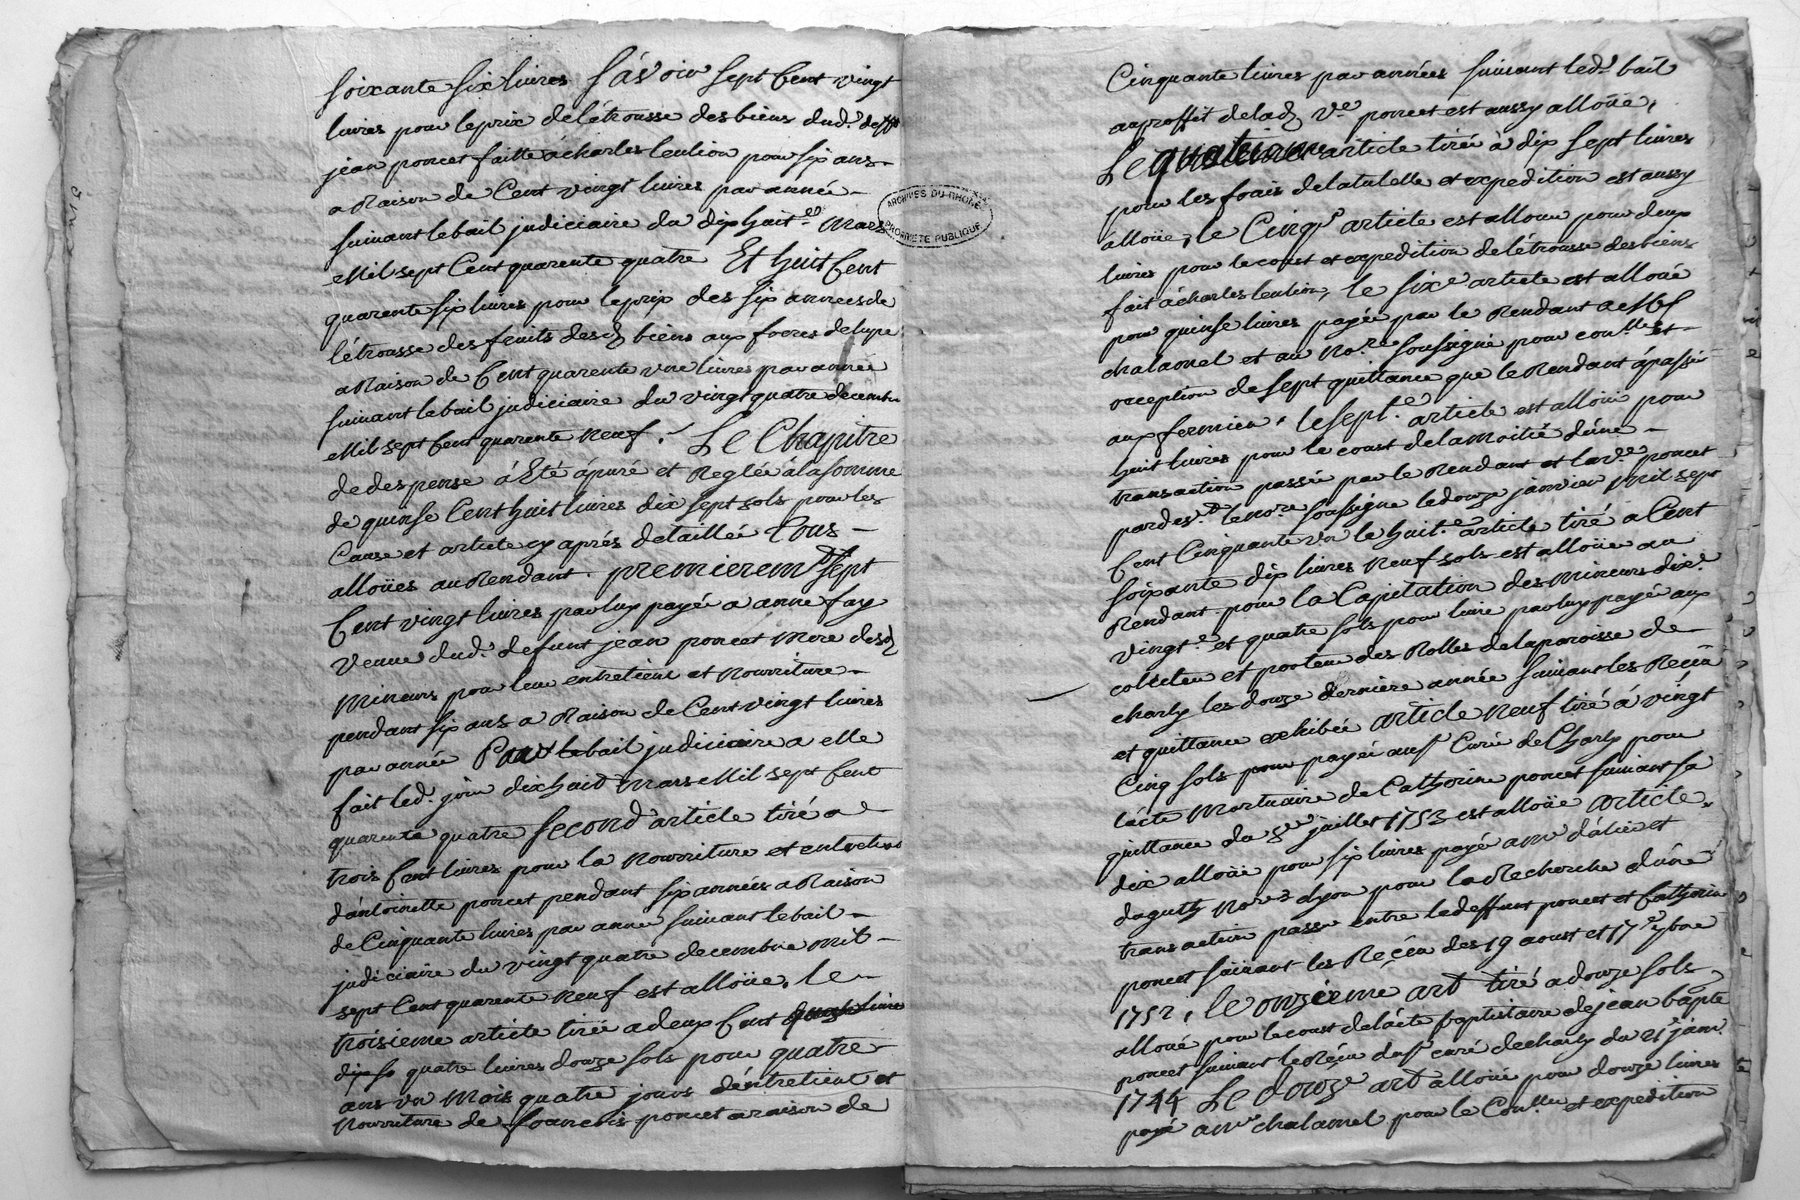 soixante six livres sâvoir sept cent vingt
livres pour le prix de létrousse des biens dud. deff
jean poncet faitte à charles leulion pour six ans
a Raison de Cent vingt livres par année
suivant le bail judiciaire du dix huit.e mars
Mil sept Cent quarente quatre Et huit Cent
quarente six livres pour le prix des six années de
létrousse des fruits desd biens aux foeres delype
a Raison de Cent quarente une livres par année
suivant le bail judiciaire du vingt quatre decembre
Mil sept Cent quarente neuf. Le Chapitre
de despense à Eté ápuré et Reglée à la somme
de quinse Cent huit livres dix sept sols pour les
Cause et article cy aprés detaillée tous
alloües au Rendant. premierem.t sept
Cent vingt livres par luy payée a anne fay
veuve dud. defunt jean poncet Mere desd
Mineurs pour leur entretient et nourriture
pendant six ans a Raison de Cent vingt livres
par année Par le bail judiciaire a elle
fait led. jour dix huit mars Mil sept Cent
quarente quatre second article tiré a
trois Cent livres pour la nourriture et entretient
dantoinette poncet pendant six années a Raison
de Cinquante livres par année suivant le bail
judiciaire du vingt quatre decembre mil
sept Cent quarente neuf est alloüe. le
troisieme article tirée a deux Cent
quatre livres douze sols pour quatre
ans un Mois quatre jours déntretient et
nourriture de francois poncet a raison de
ARCHIVES DU RHÔNE
PROPRIÉTÉ PUBLIQUE
Cinquante livres par années suivant led. bail
au proffit de lad ve. poncet est aussy alloüe,
Le quatrieme article tirée à dix sept livres
pour les frais de la tutelle et expedition est aussy
álloüe, le Cinq.e article est alloué pour deux
livres pour le coust et expedition de létrousse des biens
fait á charles leulion, le six.e article est alloüé
pour quinse livres payée par le Rendant a
chalamel et au No.re soussigné pour con.lles et
reception de sept quittance que le Rendant á passé
aux fermier. le sept.e article est alloüé pour
huit livres pour le coust de la moitié dune
transaction passée par le Rendant et la ve. poncet
pardev.t le no.re soussigné le douze janvier mil sept
Cent Cinquante un le huit.e article tiré a Cent
soixante dix livres neuf sols est alloüe au
Rendant pour la Capitation des mineurs dix.e
vingt.e et quatre sols pour livre par luy payée aux
colecteur et porteur des Rolles de la paroisse de
charly les douze derniere année suivant les Reçeu
et quittance exhibée article neuf tiré à vingt
Cinq sols pour payée au s.r Curé de Charly pour
lácte Mortuaire de Catherine poncet suivant sa
quittance du juillet 1753 est alloüe article
dix alloüé pour six livres payé a m.r
no.re à lyon pour la Recherche dúne
transaction passée entre led deffunt poncet et Catherine
poncet suivant les Reçeu des 19 aoust et 17.e 7bre
1752, le onzieme art tiré a douze sols
alloué pour le coust de lácte baptistaire de jean bapte
poncet suivant le Reçu du s.r curé de charly du 21 janv.
1744 Le douz.e art alloüé pour douze livres
payé a m.r chalamel pour le et expedition